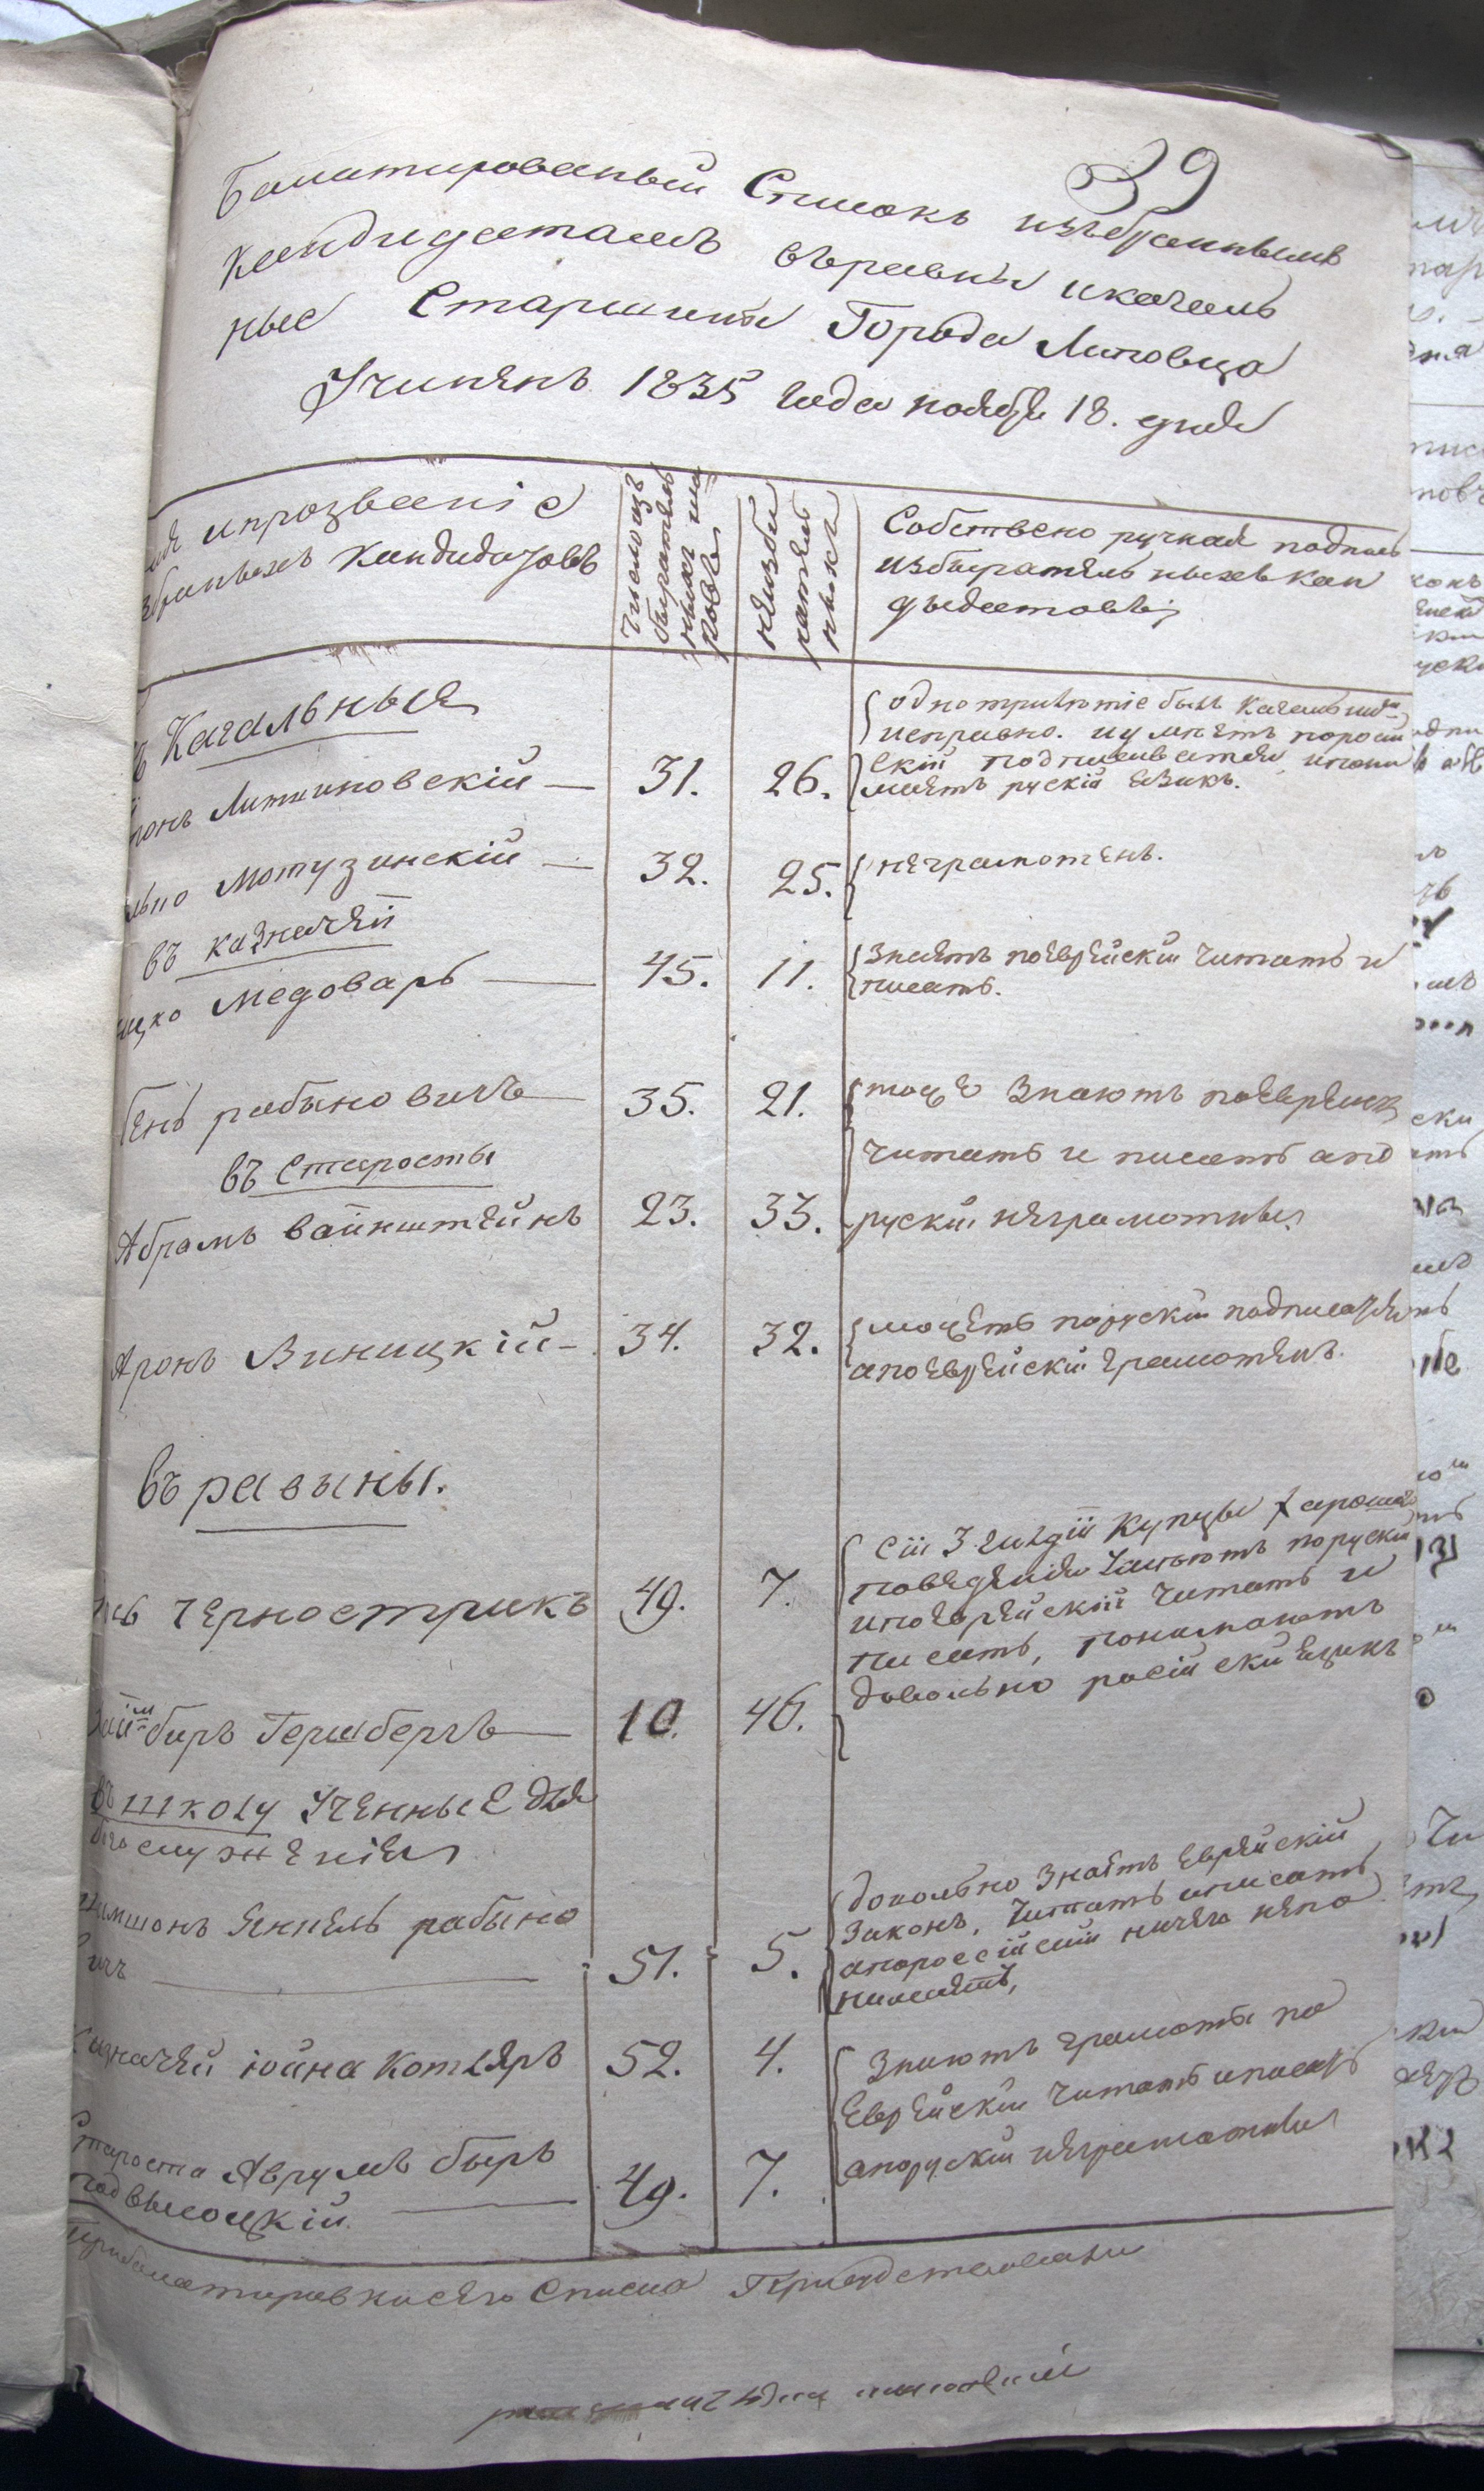 39
Балатированый Список избранымъ
Кандидатамъ въравины икагаль
ные Старшины Города Липовца
Учиненъ 1835 года ноября 18. дня
ипрозваніе
бранныхъ Кандидатовъ
Число из
бирательныхъ
ныхъ ша
ровъ
неизби
ратель
ныхъ
Собствено ручная подпись
избирательныхъ кан
дыдатовъ
Кагальныя
Литвиновскій — 31. 26.
одно трилотіе былъ Кагальнымъ
исправно. иумнетъ пороси
скій подписыватся, ипони
маетъ рускій езикъ.
Мотузинскій — 32. 25. неграмотенъ.
въ казначей
ицко Медоваръ — 45. 11. Знаетъ поеврейски Читать и
писать.
бень рабыновичъ — 35. 21. тоже Знаютъ поеврейски
Читать и писать апо
въ Старосты
Абрамъ вайнштейнъ 23. 33. руски неграмотны
Аронъ Виницкій — 34. 32. можетъ поруски подписатся
апоеврейски грамотенъ.
въ равыны.
Чорнострикъ 49. 7.
Сіи 3 гилдіи Купцы Харошаго
поведения Знаютъ поруски
ипоеврейскій Читать и
писать, понимаютъ
довольно російски Езикъ
биръ Гершбергъ — 10. 46.
въ школу Ученные для
богослуженія
Шимшонъ Янкель рабыно
вичъ — 51. 5.
довольно Знаетъ Еврейскій
Законъ, Читать иписать
апоросcійский ничего непо
нимаетъ,
Казначей Іойна Котляръ 52. 4.
Знаютъ грамоты по
Еврейски Читать иписать
апоруский неграмотны
Староста Аврумъ быръ
подвысоцкій — 49. 7.
Прибалатировки сего Списка Присудствовали